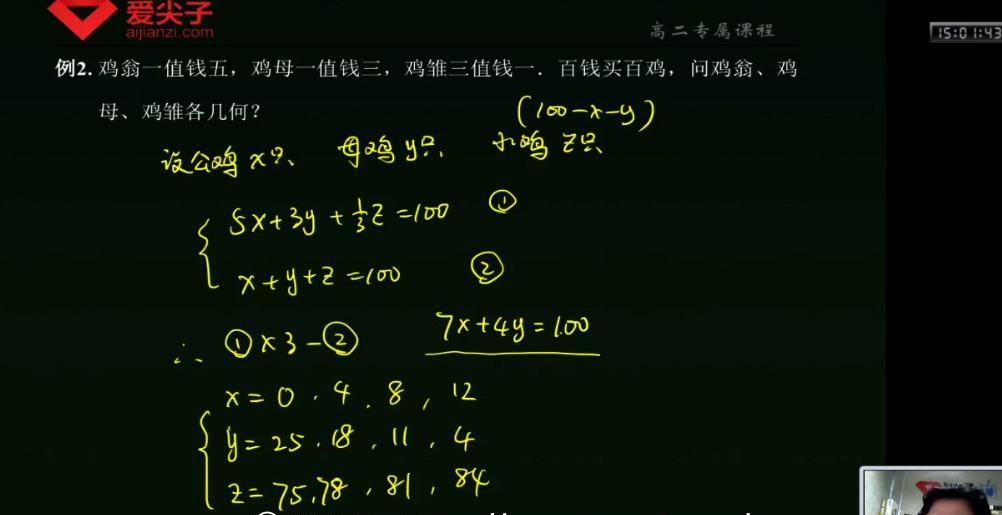 爱尖子
aijianzi.com
高二专属课程
15:01:43
例2. 鸡翁一值钱五，鸡母一值钱三，鸡雏三值钱一．百钱买百鸡，问鸡翁、鸡
母、鸡雏各几何？
(100-x-y)
设公鸡x只、 母鸡y只、 小鸡z只
5x+3y+1/3z=100 ①
x+y+z=100 ②
∴ ①×3-② 7x+4y=100
x=0.4.8,12
y=25.18,11,4
z=75.78,81,84